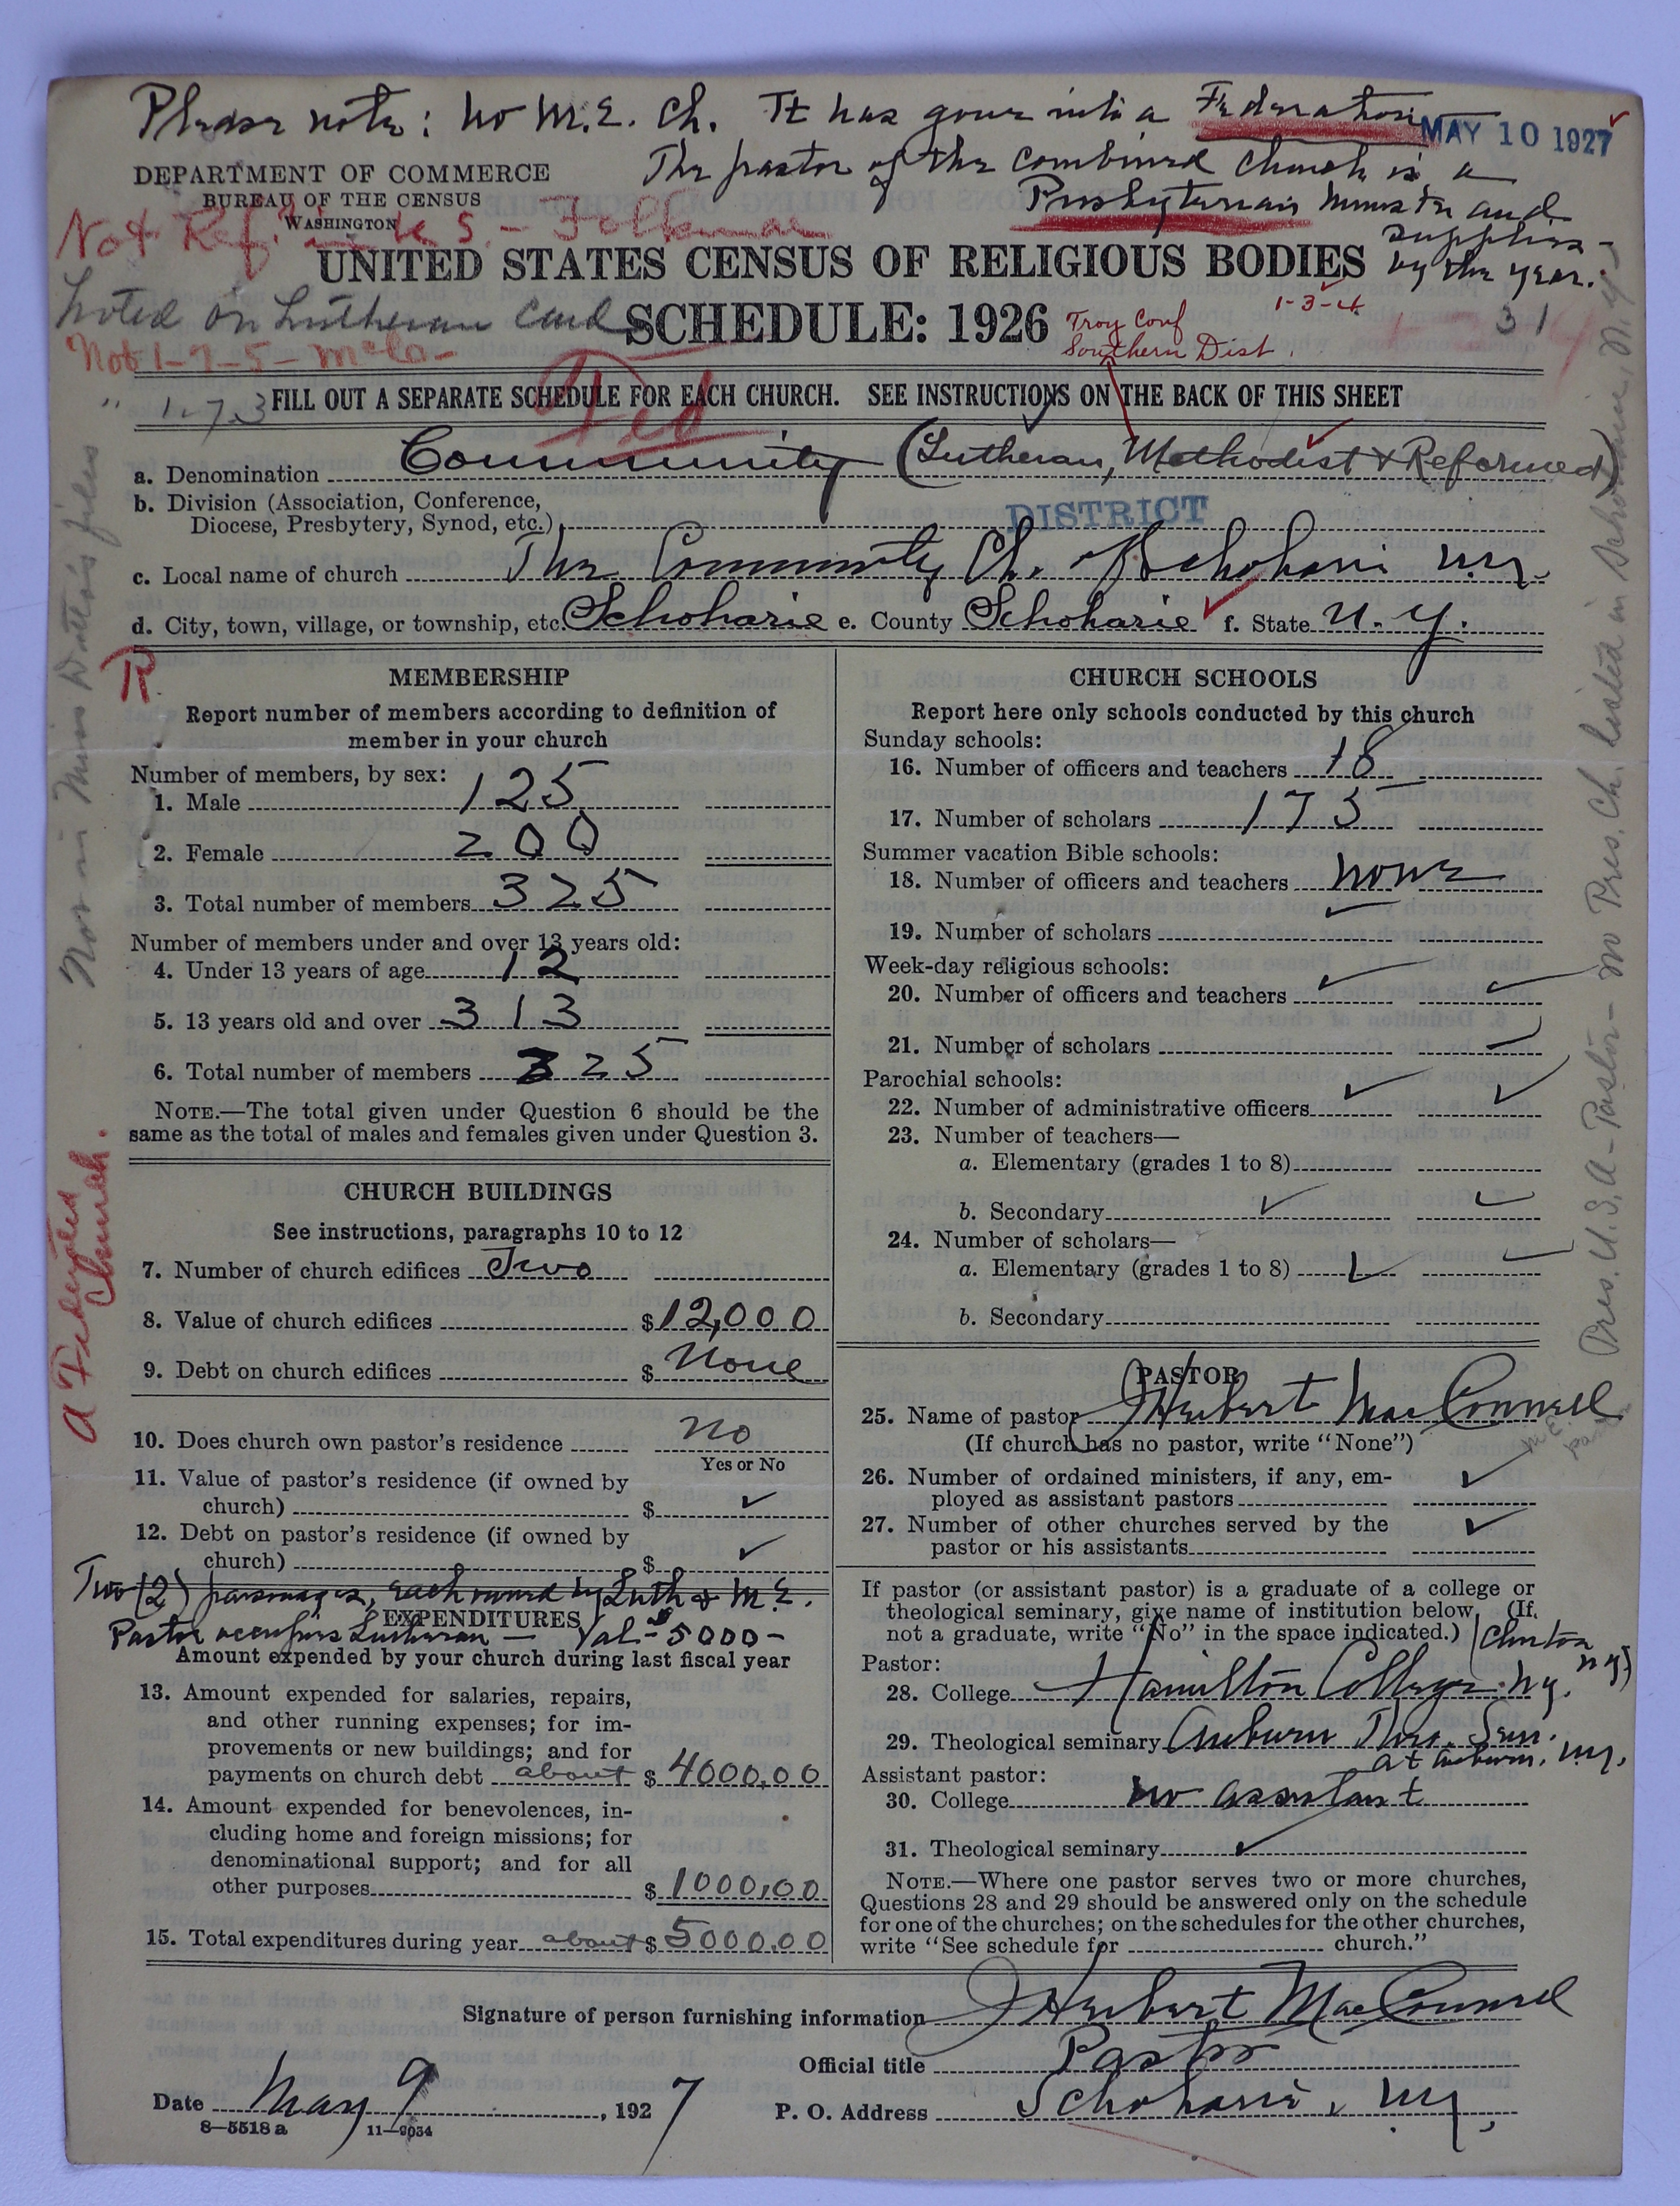 Please note: no M.E. Ch. It has gone into a Federation
MAY 10 1927
The pastor of the combined church is a
Presbyterian minister and
supplies
by the year.
DEPARTMENT OF COMMERCE
BUREAU OF THE CENSUS
WASHINGTON
Not Ref.
UNITED STATES CENSUS OF RELIGIOUS BODIES
Noted on Lutheran Card
SCHEDULE: 1926
Troy Conf
Southern Dist.
1-3-4
31
Not 1-7-5-
" 1-7-3
FILL OUT A SEPARATE SCHEDULE FOR EACH CHURCH. SEE INSTRUCTIONS ON THE BACK OF THIS SHEET
Fed
a. Denomination Community (Lutheran, Methodist & Reformed)
b. Division (Association, Conference,
Diocese, Presbytery, Synod, etc.)
DISTRICT
c. Local name of church The Community Ch. of Schoharie N.Y.
d. City, town, village, or township, etc. Schoharie e. County Schoharie f. State N.Y.
R
MEMBERSHIP
Report number of members according to definition of
member in your church
Number of members, by sex:
1. Male 125
2. Female 200
3. Total number of members 325
Number of members under and over 13 years old:
4. Under 13 years of age 12
5. 13 years old and over 313
6. Total number of members 325
NOTE.—The total given under Question 6 should be the
same as the total of males and females given under Question 3.
CHURCH BUILDINGS
See instructions, paragraphs 10 to 12
7. Number of church edifices Two
8. Value of church edifices $12,000
9. Debt on church edifices $ None
10. Does church own pastor's residence No
Yes or No
11. Value of pastor's residence (if owned by
church) $
12. Debt on pastor's residence (if owned by
church) $
Two (2) parsonages, each owned by Luth & M.E.
EXPENDITURES
Pastor occupies Lutheran — Val. $5000-
Amount expended by your church during last fiscal year
13. Amount expended for salaries, repairs,
and other running expenses; for im-
provements or new buildings; and for
payments on church debt about $4000,00
14. Amount expended for benevolences, in-
cluding home and foreign missions; for
denominational support; and for all
other purposes $1000,00
15. Total expenditures during year about $5000.00
CHURCH SCHOOLS
Report here only schools conducted by this church
Sunday schools:
16. Number of officers and teachers 18
17. Number of scholars 175
Summer vacation Bible schools:
18. Number of officers and teachers none
19. Number of scholars
Week-day religious schools:
20. Number of officers and teachers
21. Number of scholars
Parochial schools:
22. Number of administrative officers
23. Number of teachers—
a. Elementary (grades 1 to 8)
b. Secondary
24. Number of scholars—
a. Elementary (grades 1 to 8)
b. Secondary
PASTOR
25. Name of pastor J Herbert MacConnell
(If church has no pastor, write "None")
26. Number of ordained ministers, if any, em-
ployed as assistant pastors
27. Number of other churches served by the
pastor or his assistants
If pastor (or assistant pastor) is a graduate of a college or
theological seminary, give name of institution below. (If
not a graduate, write "No" in the space indicated.)
(Clinton
N.Y.)
Pastor:
28. College Hamilton College N.Y.
29. Theological seminary Auburn Theo. Sem.
at Auburn, N.Y.
Assistant pastor:
30. College no assistant
31. Theological seminary
NOTE.—Where one pastor serves two or more churches,
Questions 28 and 29 should be answered only on the schedule
for one of the churches; on the schedules for the other churches,
write "See schedule for church."
Signature of person furnishing information J Herbert MacConnell
Official title Pastor
Date May 9, 1927
P. O. Address Schoharie, N.Y.
8—5518 a 11—9034
Not in Miss Dutton's files
A Federated
Church.
Pres. U.S.A - Pastor - no Pres. Ch. listed in Schoharie, N.Y.